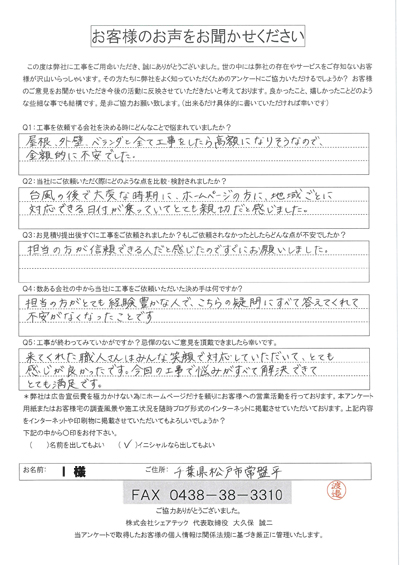 お客様のお声をお聞かせください
この度は弊社に工事をご用命いただき、誠にありがとうございました。世の中には弊社の存在やサービスをご存知ないお客
様が沢山いらっしゃいます。その方たちに弊社をよく知っていただくためのアンケートにご協力いただけるでしょうか? お客様
のご意見をお聞かせいただき今後の活動に反映させていただきたいと考えております。良かったこと、嬉しかったことどのよう
な些細な事でも結構です。是非ご協力お願い致します。(出来るだけ具体的に書いていただければ幸いです)
Q1:工事を依頼する会社を決める時にどんなことで悩まれていましたか?
屋根、外壁、ベランダと全て工事をしたら高額になりそうなので、
金額的に不安でした。
Q2:当社にご依頼いただく際にどのような点を比較・検討されましたか?
台風の後で大変な時期に、ホームページの方に、地域ごとに
対応できる日付が乗っていてとても親切だと感じました。
Q3:お見積り提出後すぐに工事をご依頼されましたか?もしご依頼されなかったとしたらどんな点が不安でしたか?
担当の方が信頼できる人だと感じたのですぐにお願いしました。
Q4:数ある会社の中から当社に工事をご依頼いただいた決め手は何ですか?
担当の方がとても経験豊かな人で、こちらの疑問にすべて答えてくれて
不安がなくなったことです
Q5:工事が終わってみていかがですか?忌憚のないご意見を頂戴できましたら幸いです。
来てくれた職人さんはみんな笑顔で対応していただいて、とても
感じが良かったです。今回の工事で悩みがすべて解決できて
とても満足です。
*弊社は広告宣伝費を極力かけない為にホームページだけを頼りにお客様への営業活動を行っております。本アンケート
用紙またはお客様宅の調査風景や施工状況を随時ブログ形式のインターネットに掲載させていただいております。上記内容
をインターネットや印刷物に掲載させていただいてもよろしいでしょうか?
下記の中から〇印をお付下さい。
( )名前を出してもよい (✓)イニシャルなら出してもよい
お名前: I 様 ご住所: 千葉県松戸市常盤平
FAX 0438-38-3310
渡邉
ご協力ありがとうございました。
株式会社シェアテック 代表取締役 大久保 誠二
当アンケートで取得したお客様の個人情報は関係法規に基づき厳正に管理いたします。